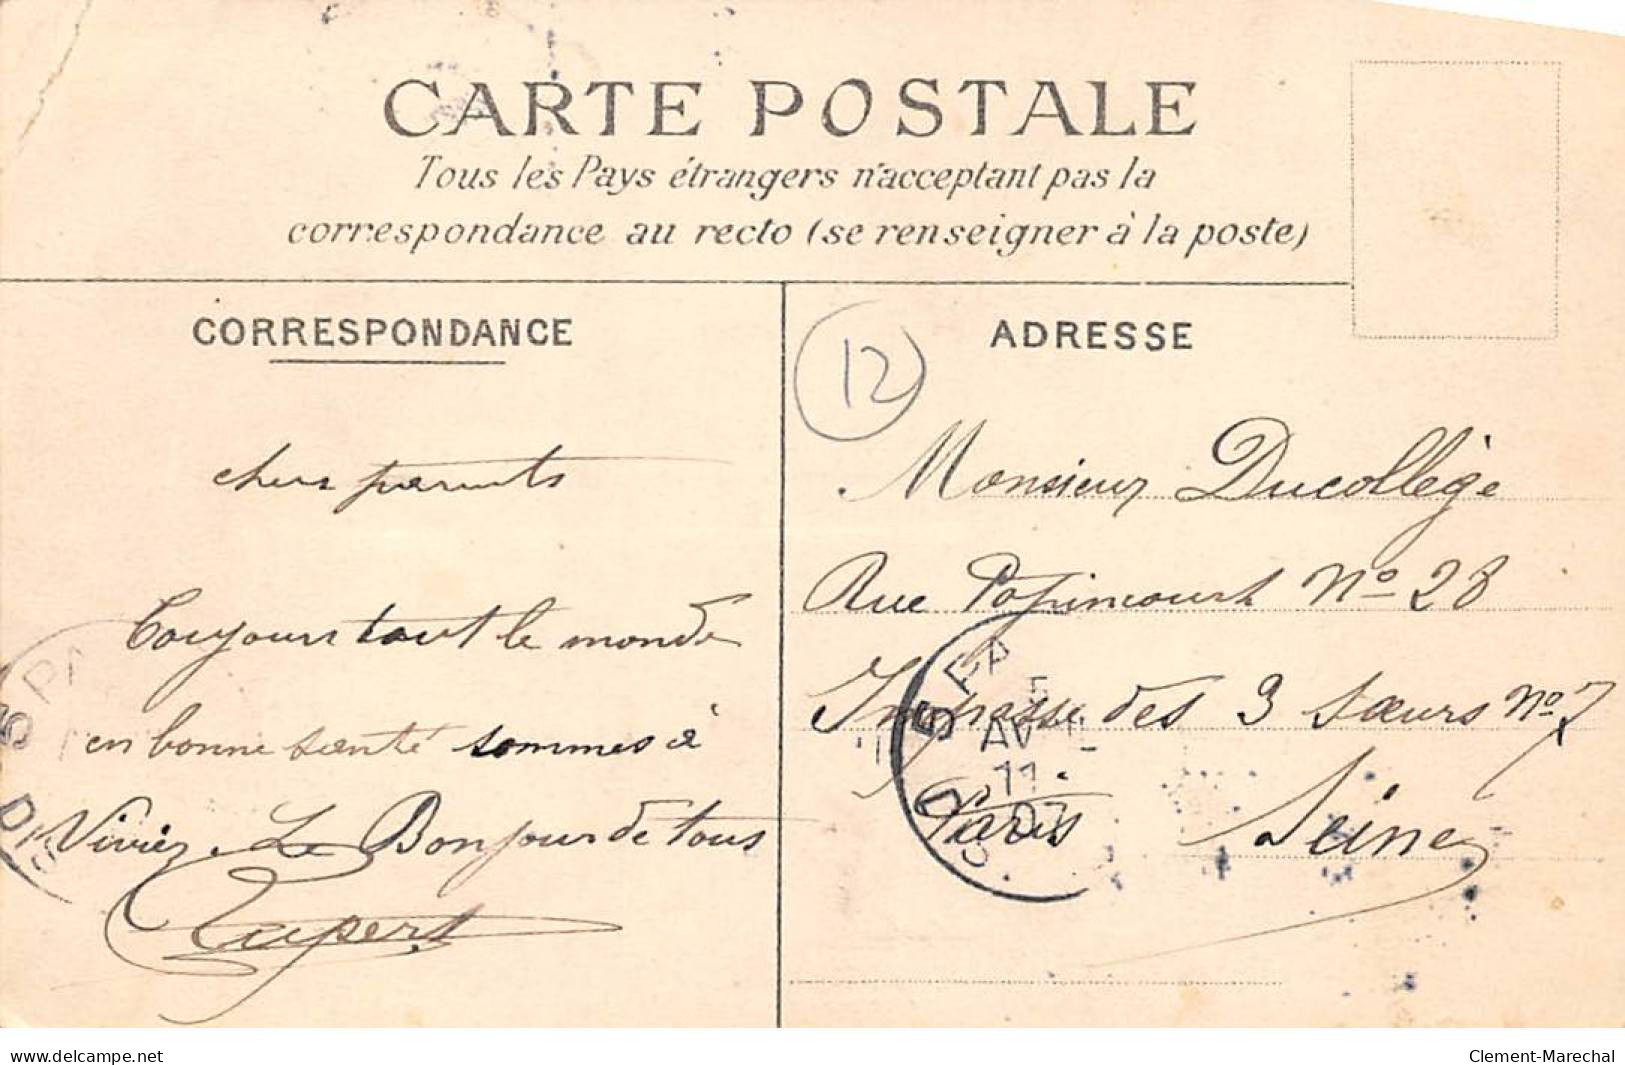 CARTE POSTALE
Tous les Pays étrangers n'acceptant pas la
correspondance au recto (se renseigner à la poste)
CORRESPONDANCE
chers parents
Toujours tout le monde
en bonne santé sommes à
Viviez. Le Bonjour de tous
ADRESSE
12
Monsieur Ducollège
Rue Popincourt No 28
Impasse des 3 sœurs No 7
Paris Seine
5
AV
11
07
delcampe.net
Clement-Marechal